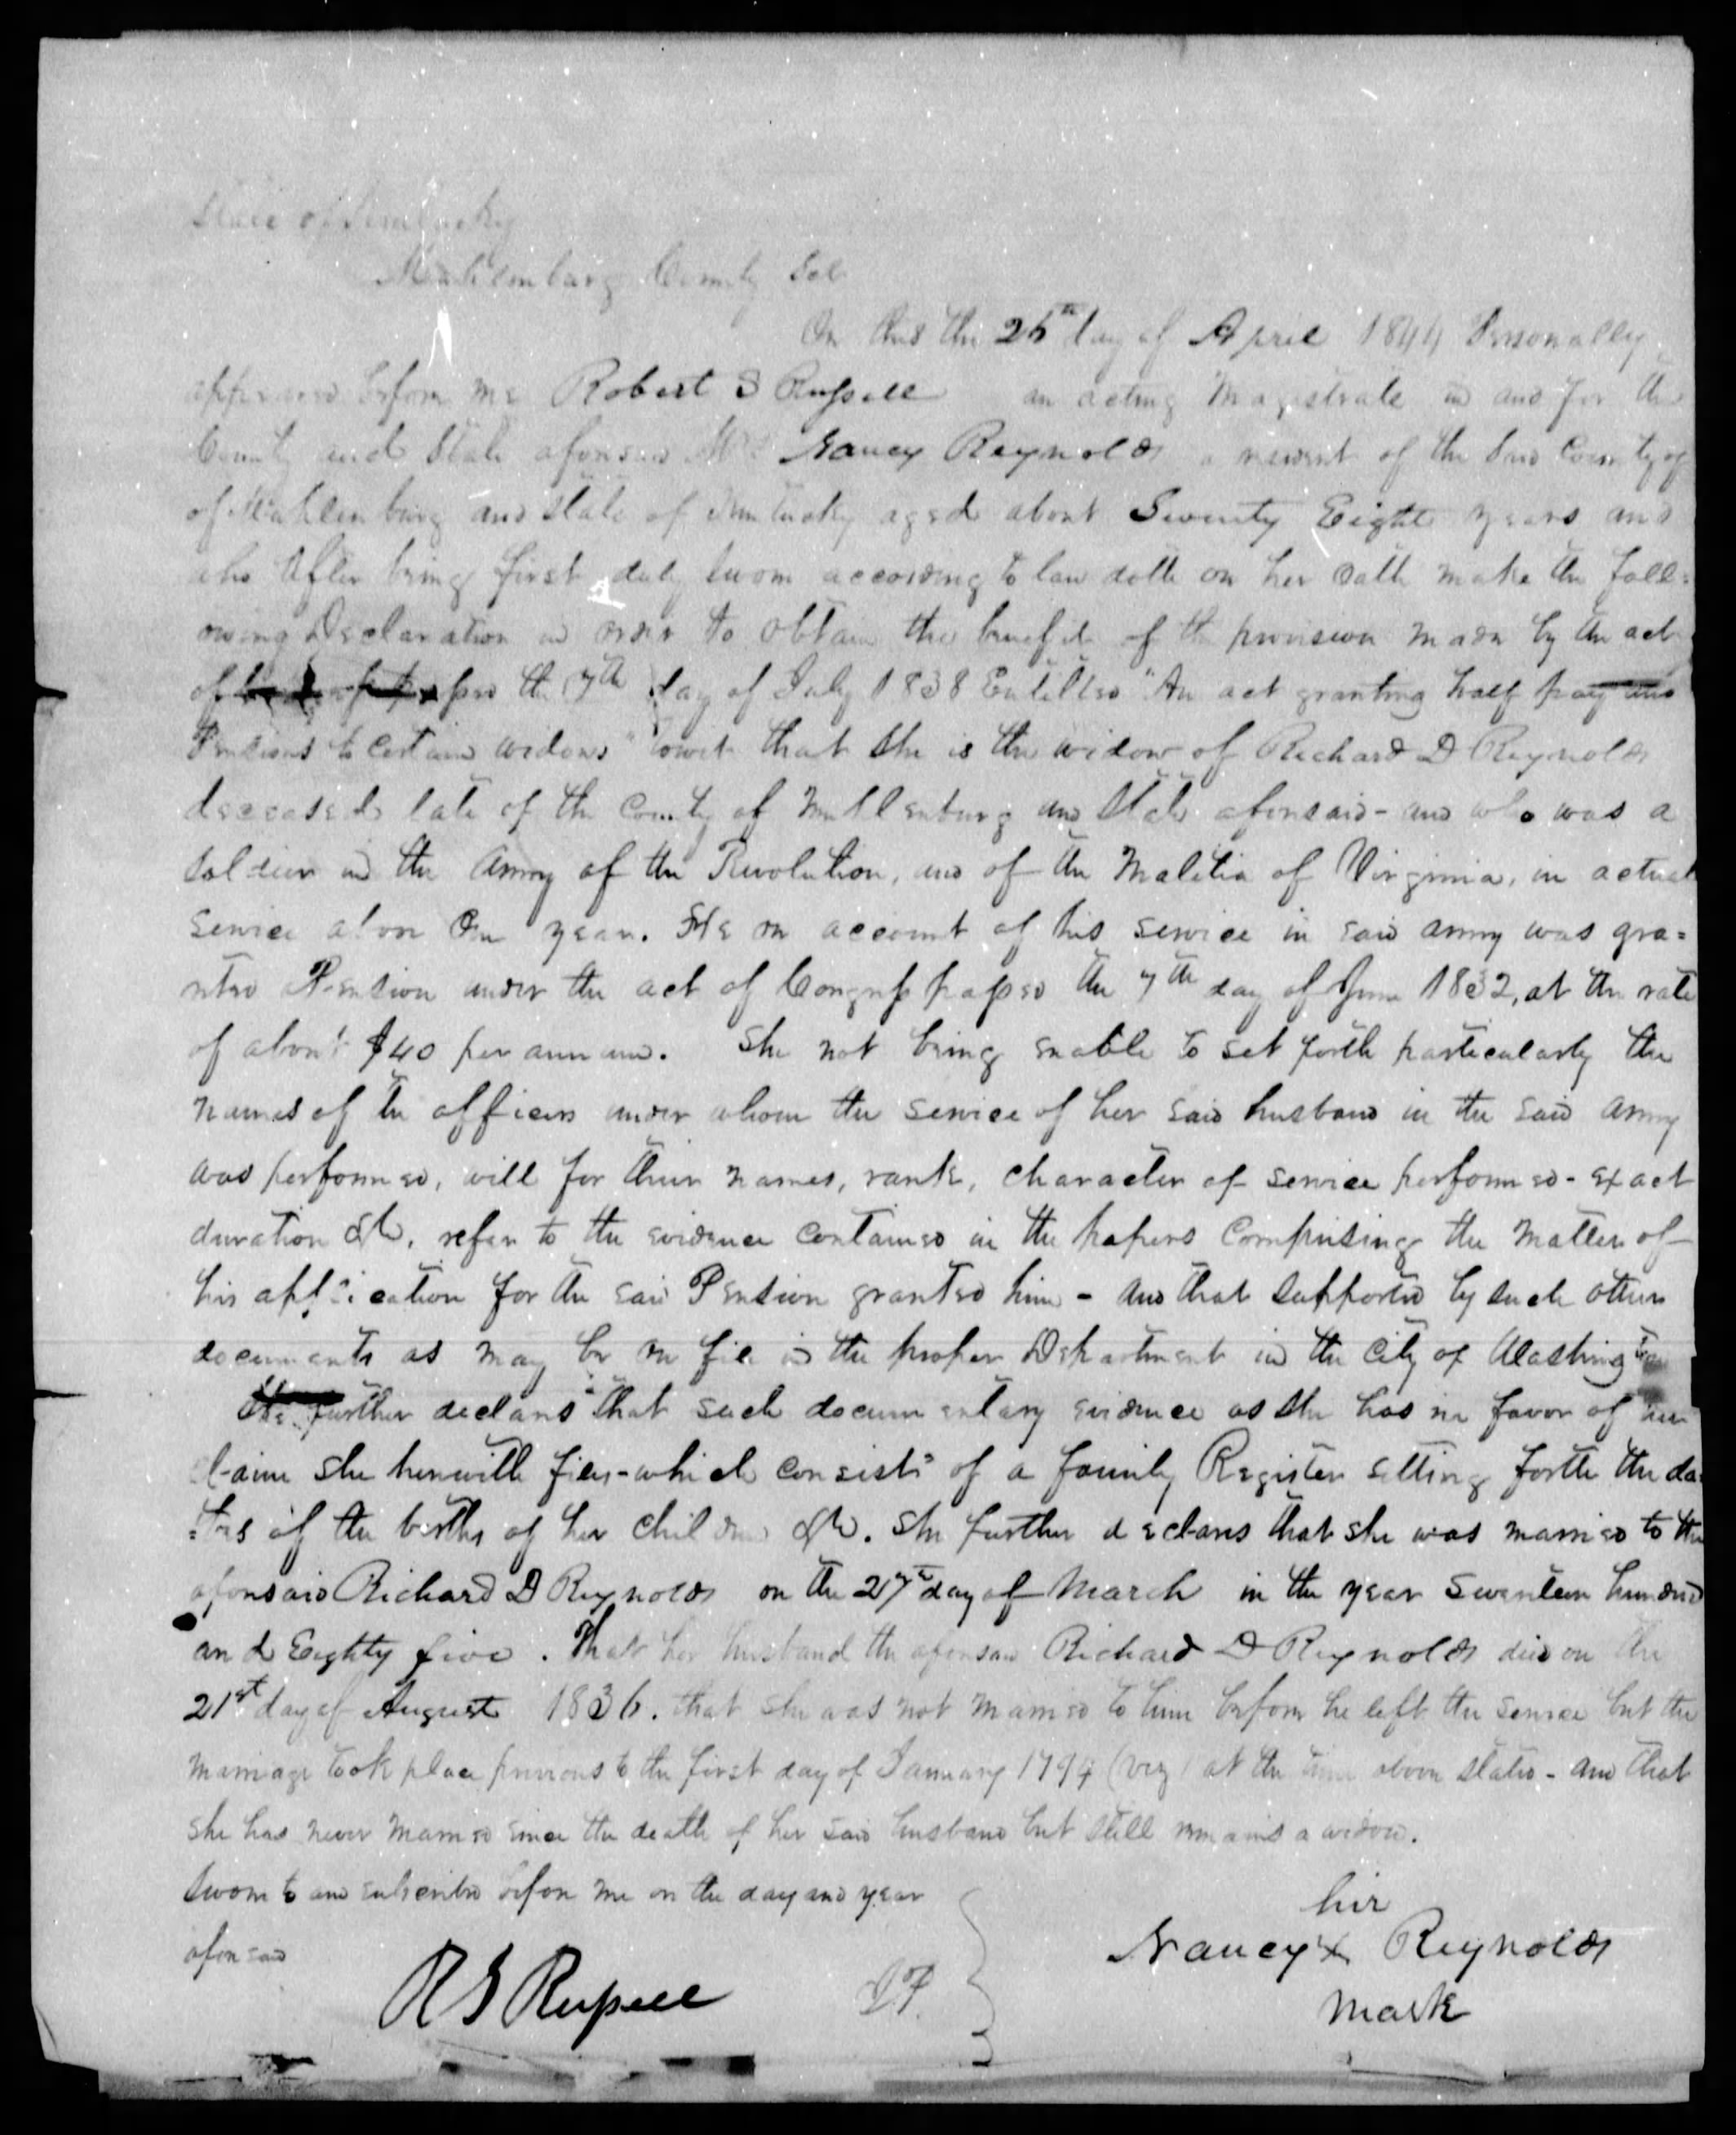 State of Kentucky
Muhlenburg County Sct
On this the 25th day of April 1844 Personally
appeared before me Robert S Russell an acting Magistrate in and for the
County and State aforesaid Mrs Nancy Reynolds a resident of the said County of
of Muhlenburg and State of Kentucky aged about Seventy Eight years and
who after being first duly sworn according to law doth on her oath make the foll=
owing Declaration in order to obtain the benefit of the provision made by the act
of the 7th day of July 1838 Entitled "An act granting half pay and
Pensions to certain widows" towit that she is the widow of Richard D Reynolds
deceased late of the County of Muhlenburg and State aforesaid - and who was a
soldier in the Army of the Revolution, and of the Malitia of Virginia, in actual
service above One year. He on account of his service in said army was gra=
nted a Pension under the act of Congress passed the 7th day of June 1832, at the rate
of about $40 per annum. She not being enable to set forth particularly the
names of the officers under whom the service of her said husband in the said army
was performed, will for their names, rank, character of service performed - exact
duration &c, refer to the evidence contained in the papers comprising the matter of
his application for the said Pension granted him - and that supported by such other
documents as may be on file in the proper Department in the city of Washington
She further declares that such documentary evidence as she has in favor of her
claim she herewith files - which consists of a family Register setting forth the da=
=tes of the births of her children &c. She further declares that she was married to the
aforesaid Richard D Reynolds on the 27th day of March in the year Seventeen hundred
and Eighty five. That her husband the aforesaid Richard D Reynolds died on the
21st day of August 1836. that she was not married to him before he left the service but the
marriage took place previous to the first day of January 1794 (viz) at the time above stated - and that
she has never married since the death of her said husband but still remains a widow.
Sworn to and subscribed before me on the day and year
aforesaid
R S Russell JP.
her
Nancy X Reynolds
mark